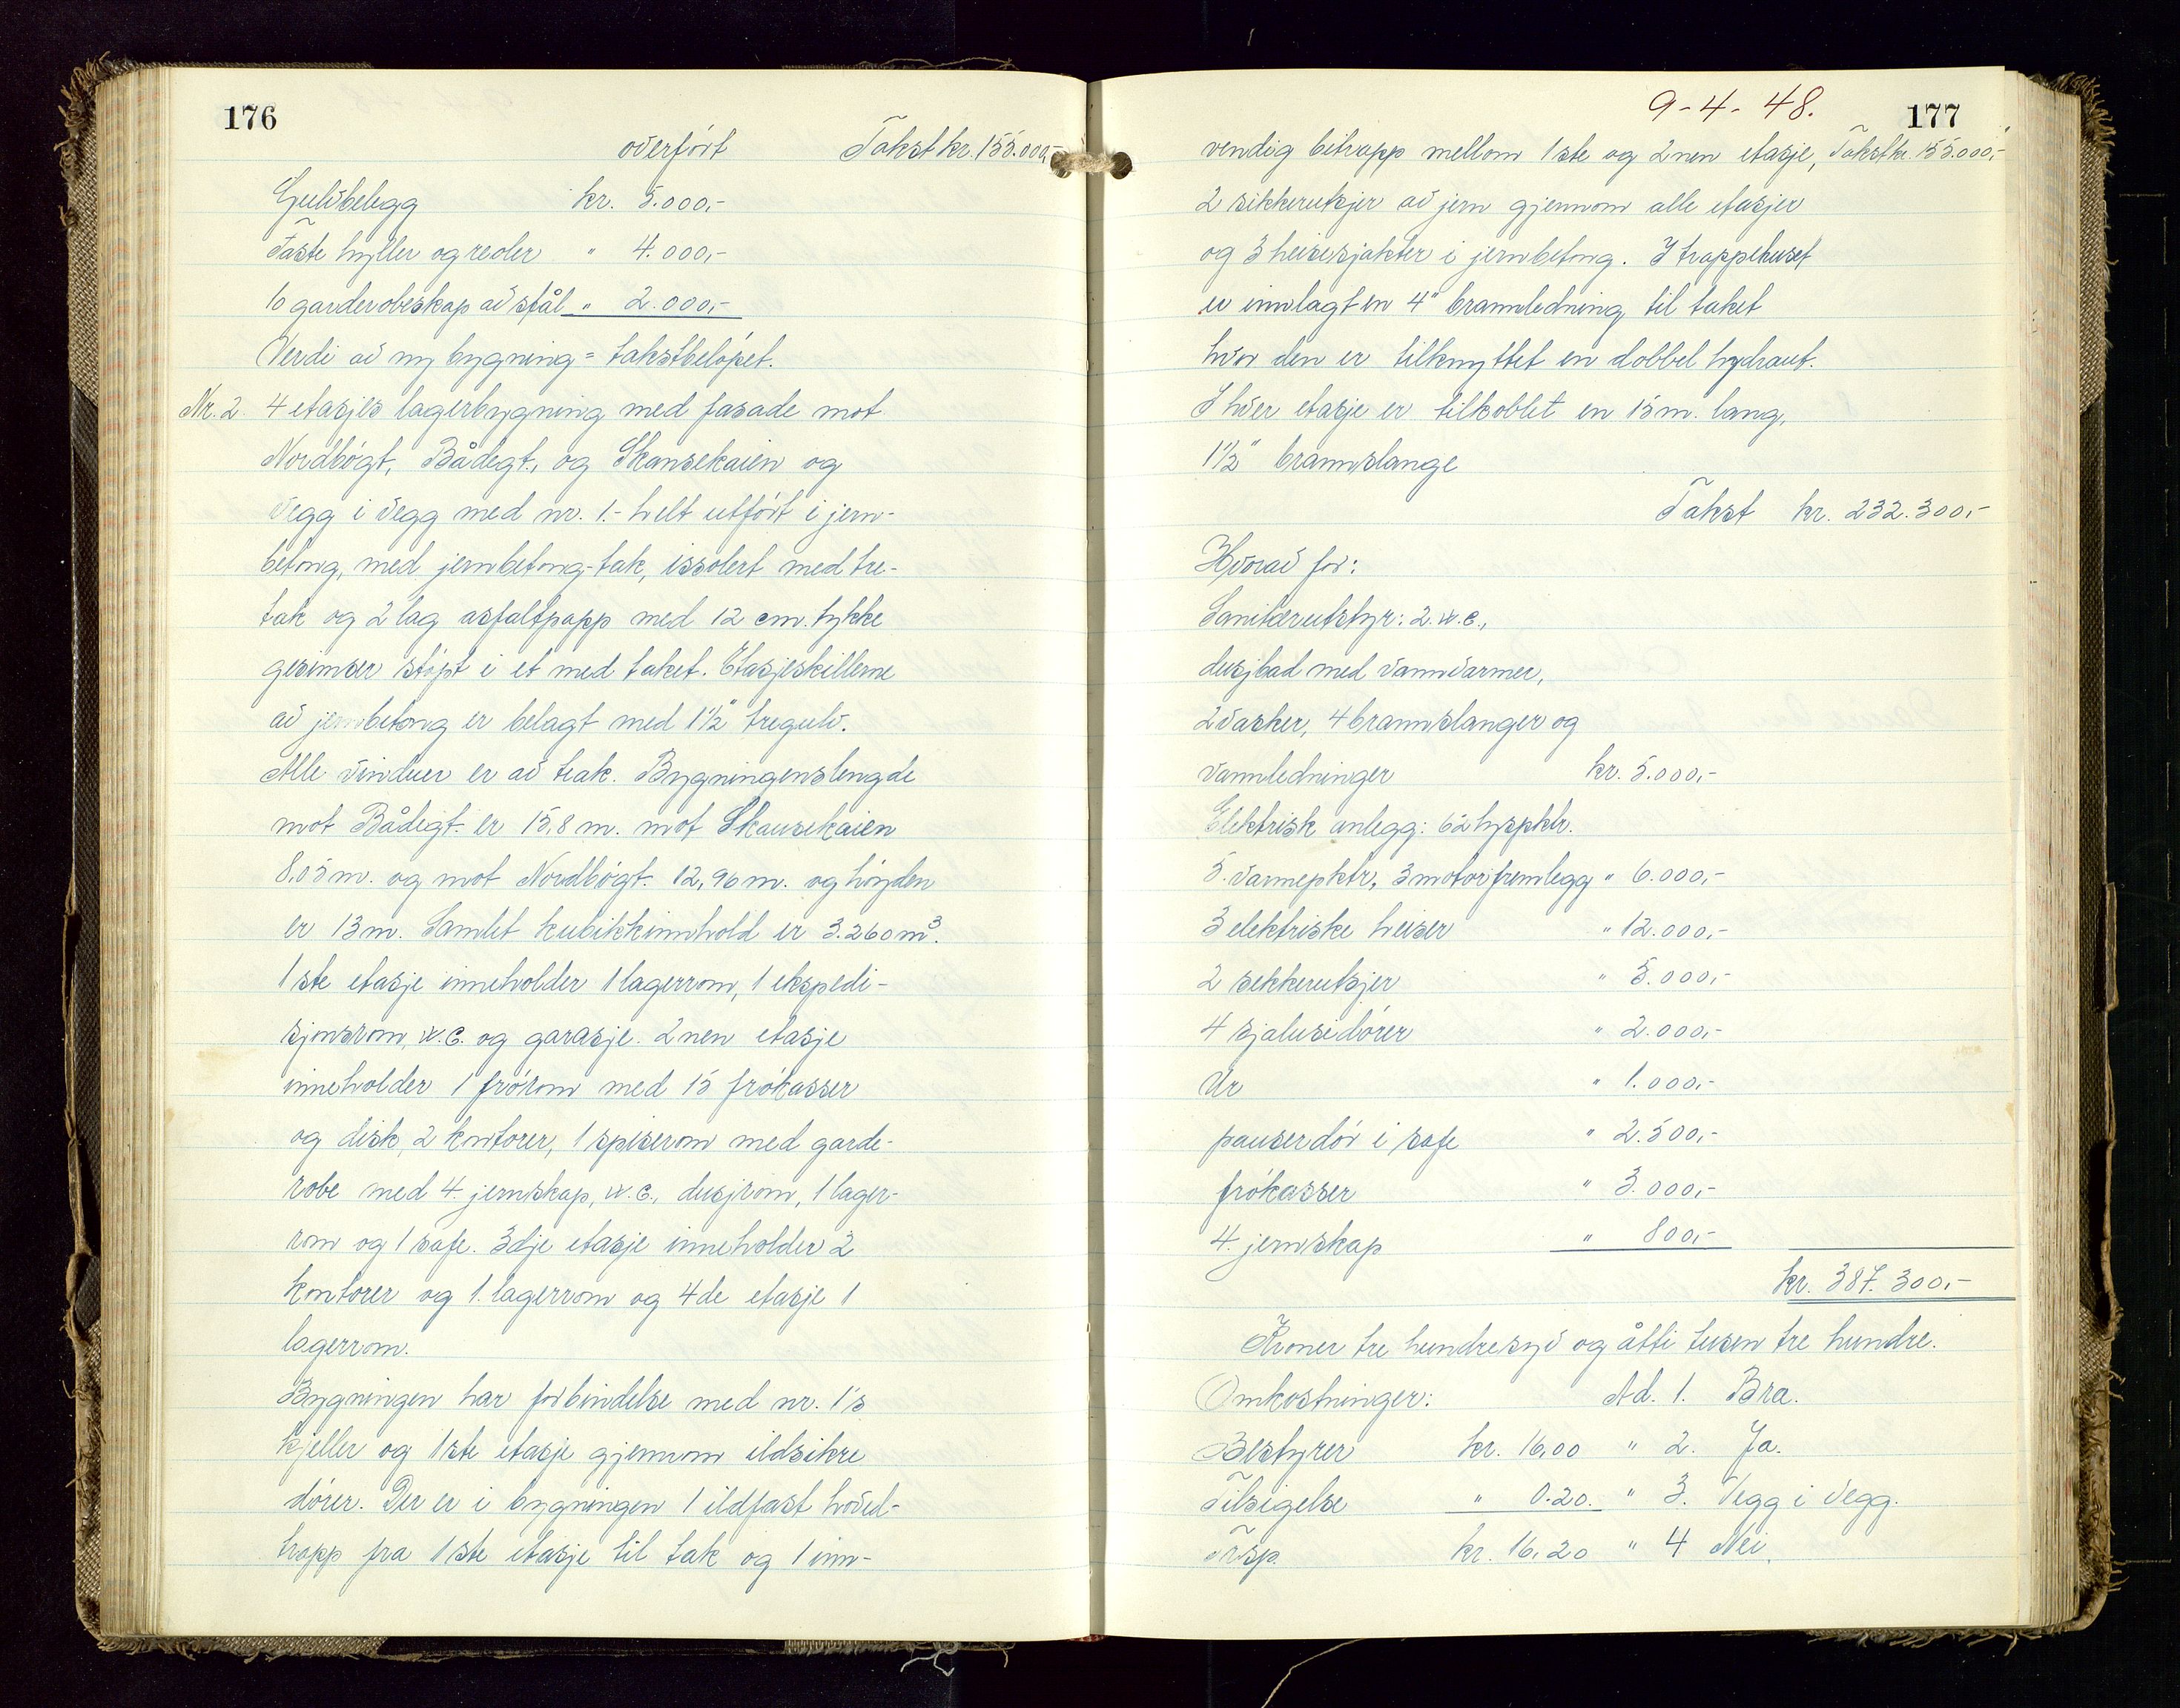 176
overført Takst kr. 155.000,-
Gulvbelegg kr. 5.000,-
Faste hyller og reoler " 4.000,-
10 garderobeskap av stål " 2.000,-
Verdi av ny bygning = takstbeløpet.
Nr. 2. 4 etasjes lagerbygning med fasade mot
Nordbøgt, Bådegt., og Skansekaien og
vegg i vegg med nr. 1.- helt utført i jern-
betong, med jernbetong-tak, issolert med tre-
tak og 2 lag asfaltpapp med 12 cm. tykke
gesimser støpt i et med taket. Etasjeskillerne
av jernbetong er belagt med 1 1/2" tregulv.
Alle vinduer er av teak. Bygningens lengde
mot Bådegt. er 15,8 m. mot Skansekaien
8,05 m. og mot Nordbøgt. 12,96 m. og høyden
er 13 m. Samlet kubikkinnhold er 3.260 m³.
1ste etasje inneholder 1 lagerrom, 1 ekspedi-
sjonsrom, w.c. og garasje. 2nen etasje
inneholder 1 frørom med 15 frøkasser
og disk, 2 kontorer, 1 spiserom med garde-
robe med 4. jernskap, w.c., dusjrom, 1 lager-
rom og 1 safe. 3dje etasje inneholder 2
kontorer og 1. lagerrom og 4de etasje 1
lagerrom.
Bygningen har forbindelse med nr. 1's
kjeller og 1ste etasje gjennom ildsikre
dører. Der er i bygningen 1 ildfast hoved-
trapp fra 1ste etasje til tak og 1 inn-
9-4-48. 177
vendig bitrapp mellom 1ste og 2nen etasje, Takst kr. 155.000,-
2 sikkerutsjer av jern gjennom alle etasjer
og 3 heisesjakter i jernbetong. I trappehuset
er innlagt en 4" brannledning til taket
hvor den er tilknyttet en dobbel hydrant.
I hver etasje er tilkoblet en 15 m. lang,
1 1/2" brannslange
Takst kr. 232.300,-
Hvorav for:
Sanitærutstyr: 2. w.c.,
dusjbad med vannvarmer,
2 vasker, 4 brannslanger og
vannledninger kr. 5.000,-
Elektrisk anlegg: 62 lyspktr.
5. varmepktr, 3 motorfremlegg " 6.000,-
3 elektriske heiser " 12.000,-
2 sekkerutsjer " 5.000,-
4 sjalusidører " 2.000,-
Ur " 1.000,-
panserdør i safe " 2.500,-
frøkasser " 3.000,-
4. jernskap " 800,-
kr. 387.300,-
Kroner tre hundresyv og åtti tusen tre hundre.
Omkostninger: Ad. 1. Bra.
Bestyrer kr. 16,00 " 2. Ja.
Tilsigelse " 0.20. " 3. Vegg i vegg.
Trsp. kr. 16,20 " 4 Nei.